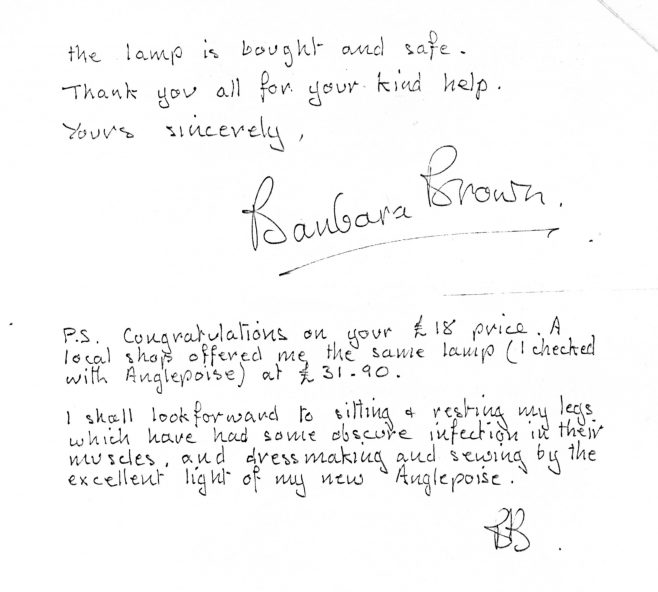 the lamp is bought and safe.
Thank you all for your kind help.
Yours sincerely,
Barbara Brown.
P.S. Congratulations on your £18 price. A
local shop offered me the same lamp (I checked
with Anglepoise) at £31-90.
I shall look forward to sitting & resting my legs
which have had some obscure infection in their
muscles, and dressmaking and sewing by the
excellent light of my new Anglepoise.
BB.